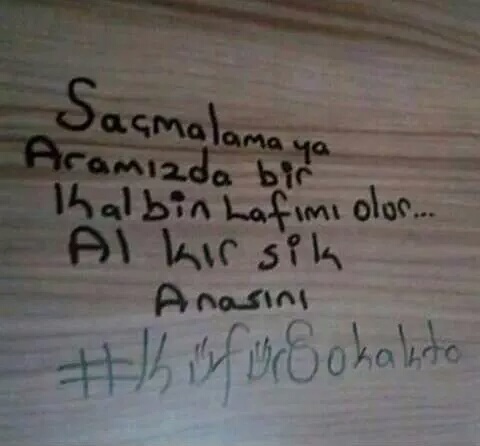 Saçmalama ya
Aramızda bir
Kalbin Lafımı olur...
Al kır sik
Anasını
#KüfürSokakta